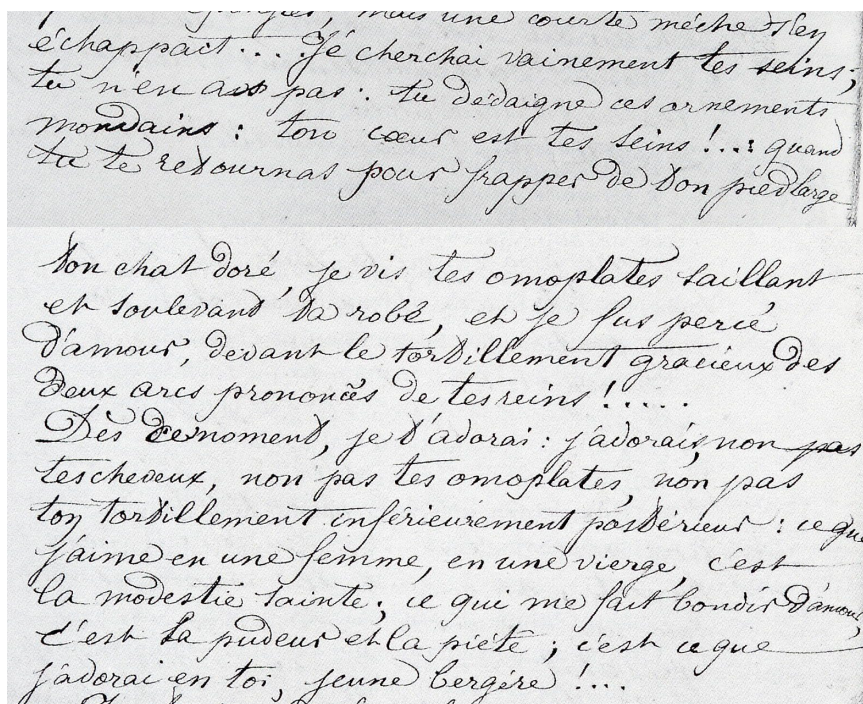 mais une courte mèche s'en
échappact.... Je cherchai vainement tes seins ;
tu n'en as pas : tu dédaigne ces ornements
mondains : ton cœur est tes seins !... quand
tu te retournas pour frapper de ton pied large
ton chat doré, je vis tes omoplates saillant
et soulevant ta robe, et je fus percé
d'amour, devant le tortillement gracieux des
deux arcs prononcés de tes reins !.....
Dès ce moment, je t'adorai : j'adorais, non pas
tes cheveux, non pas tes omoplates, non pas
ton tortillement inférieurement postérieur : ce que
j'aime en une femme, en une vierge, c'est
la modestie sainte ; ce qui me fait bondir d'amour,
c'est la pudeur et la piété ; c'est ce que
j'adorai en toi, jeune bergère !...